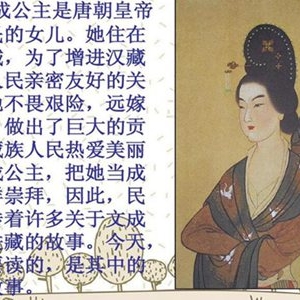 成公主是唐朝皇帝
的女儿。她住在
，为了增进汉藏
人民亲密友好的关
不畏艰险，远嫁
，做出了巨大的贡
藏族人民热爱美丽
成公主，把她当成
崇拜，因此，民
着许多关于文成
藏的故事。今天，
读的，是其中的
故事。